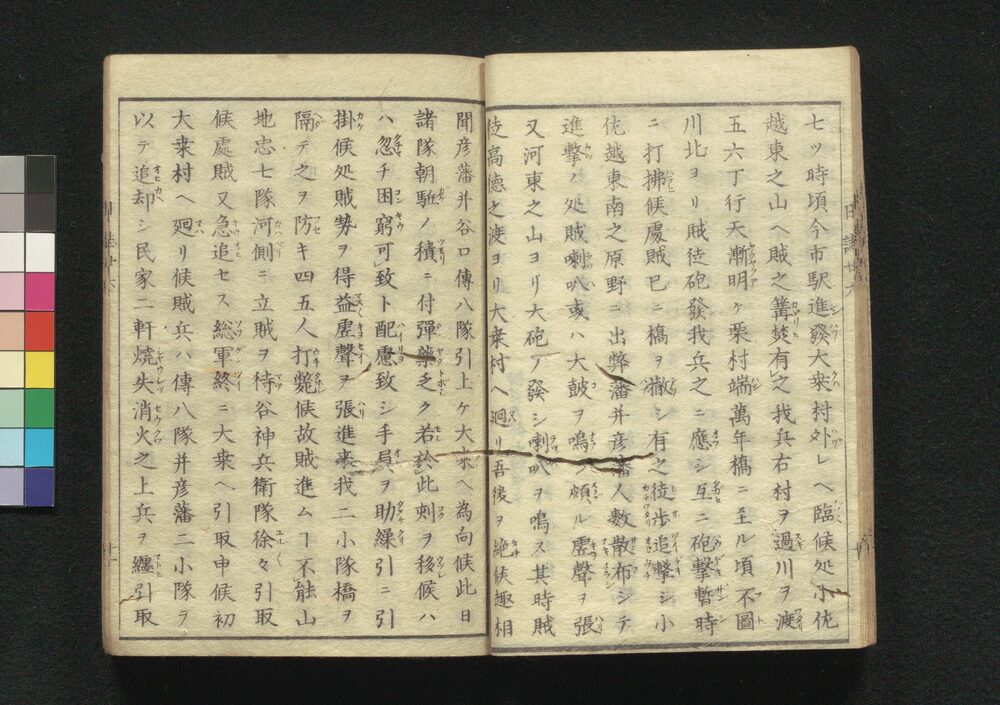 七ツ時頃今市駅進發大桒村外レヘ臨候処小佐
越東之山ヘ賊之篝焚有之我兵右村ヲ過川ヲ渡
五六丁行天漸明ヶ栗村端萬年橋ニ至ル頃不圖
川北ヨリ賊徒砲發我兵之ニ應シ互ニ砲撃暫時
ニ打拂候處賊巳ニ橋ヲ撤シ有之徒歩追撃シ小
佐越東南之原野ニ出弊藩并彦藩人数散布シテ
進撃ノ処賊喇叭或ハ大鼓ヲ鳴ハ頗ル虚聲ヲ張
又河東之山ヨリ大砲ヲ發シ喇叭ヲ鳴ス其時賊
徒高徳之渡ヨリ大桒村ヘ廻リ吾後ヲ絶候趣相
聞彦藩并谷口傳八隊引上ケ大桒ヘ為向候此日
諸隊朝駈ノ積ニ付彈藥乏ク若於此刻ヲ移候ハ
ハ忽チ困窮可致ト配慮致シ手負ヲ助繰引ニ引
掛候処賊勢ヲ得益虚聲ヲ張進来我二小隊橋ヲ
隔テ之ヲ防キ四五人打斃候故賊進ムヿ不能山
地忠七隊河側ニ立賊ヲ待谷神兵衛隊徐々引取
候處賊又急追セス総軍終ニ大桒ヘ引取申候初
大桒村ヘ廻リ候賊兵ハ傳八隊并彦藩二小隊ヲ
以テ追却シ民家二軒焼失消火之上兵ヲ纒引取